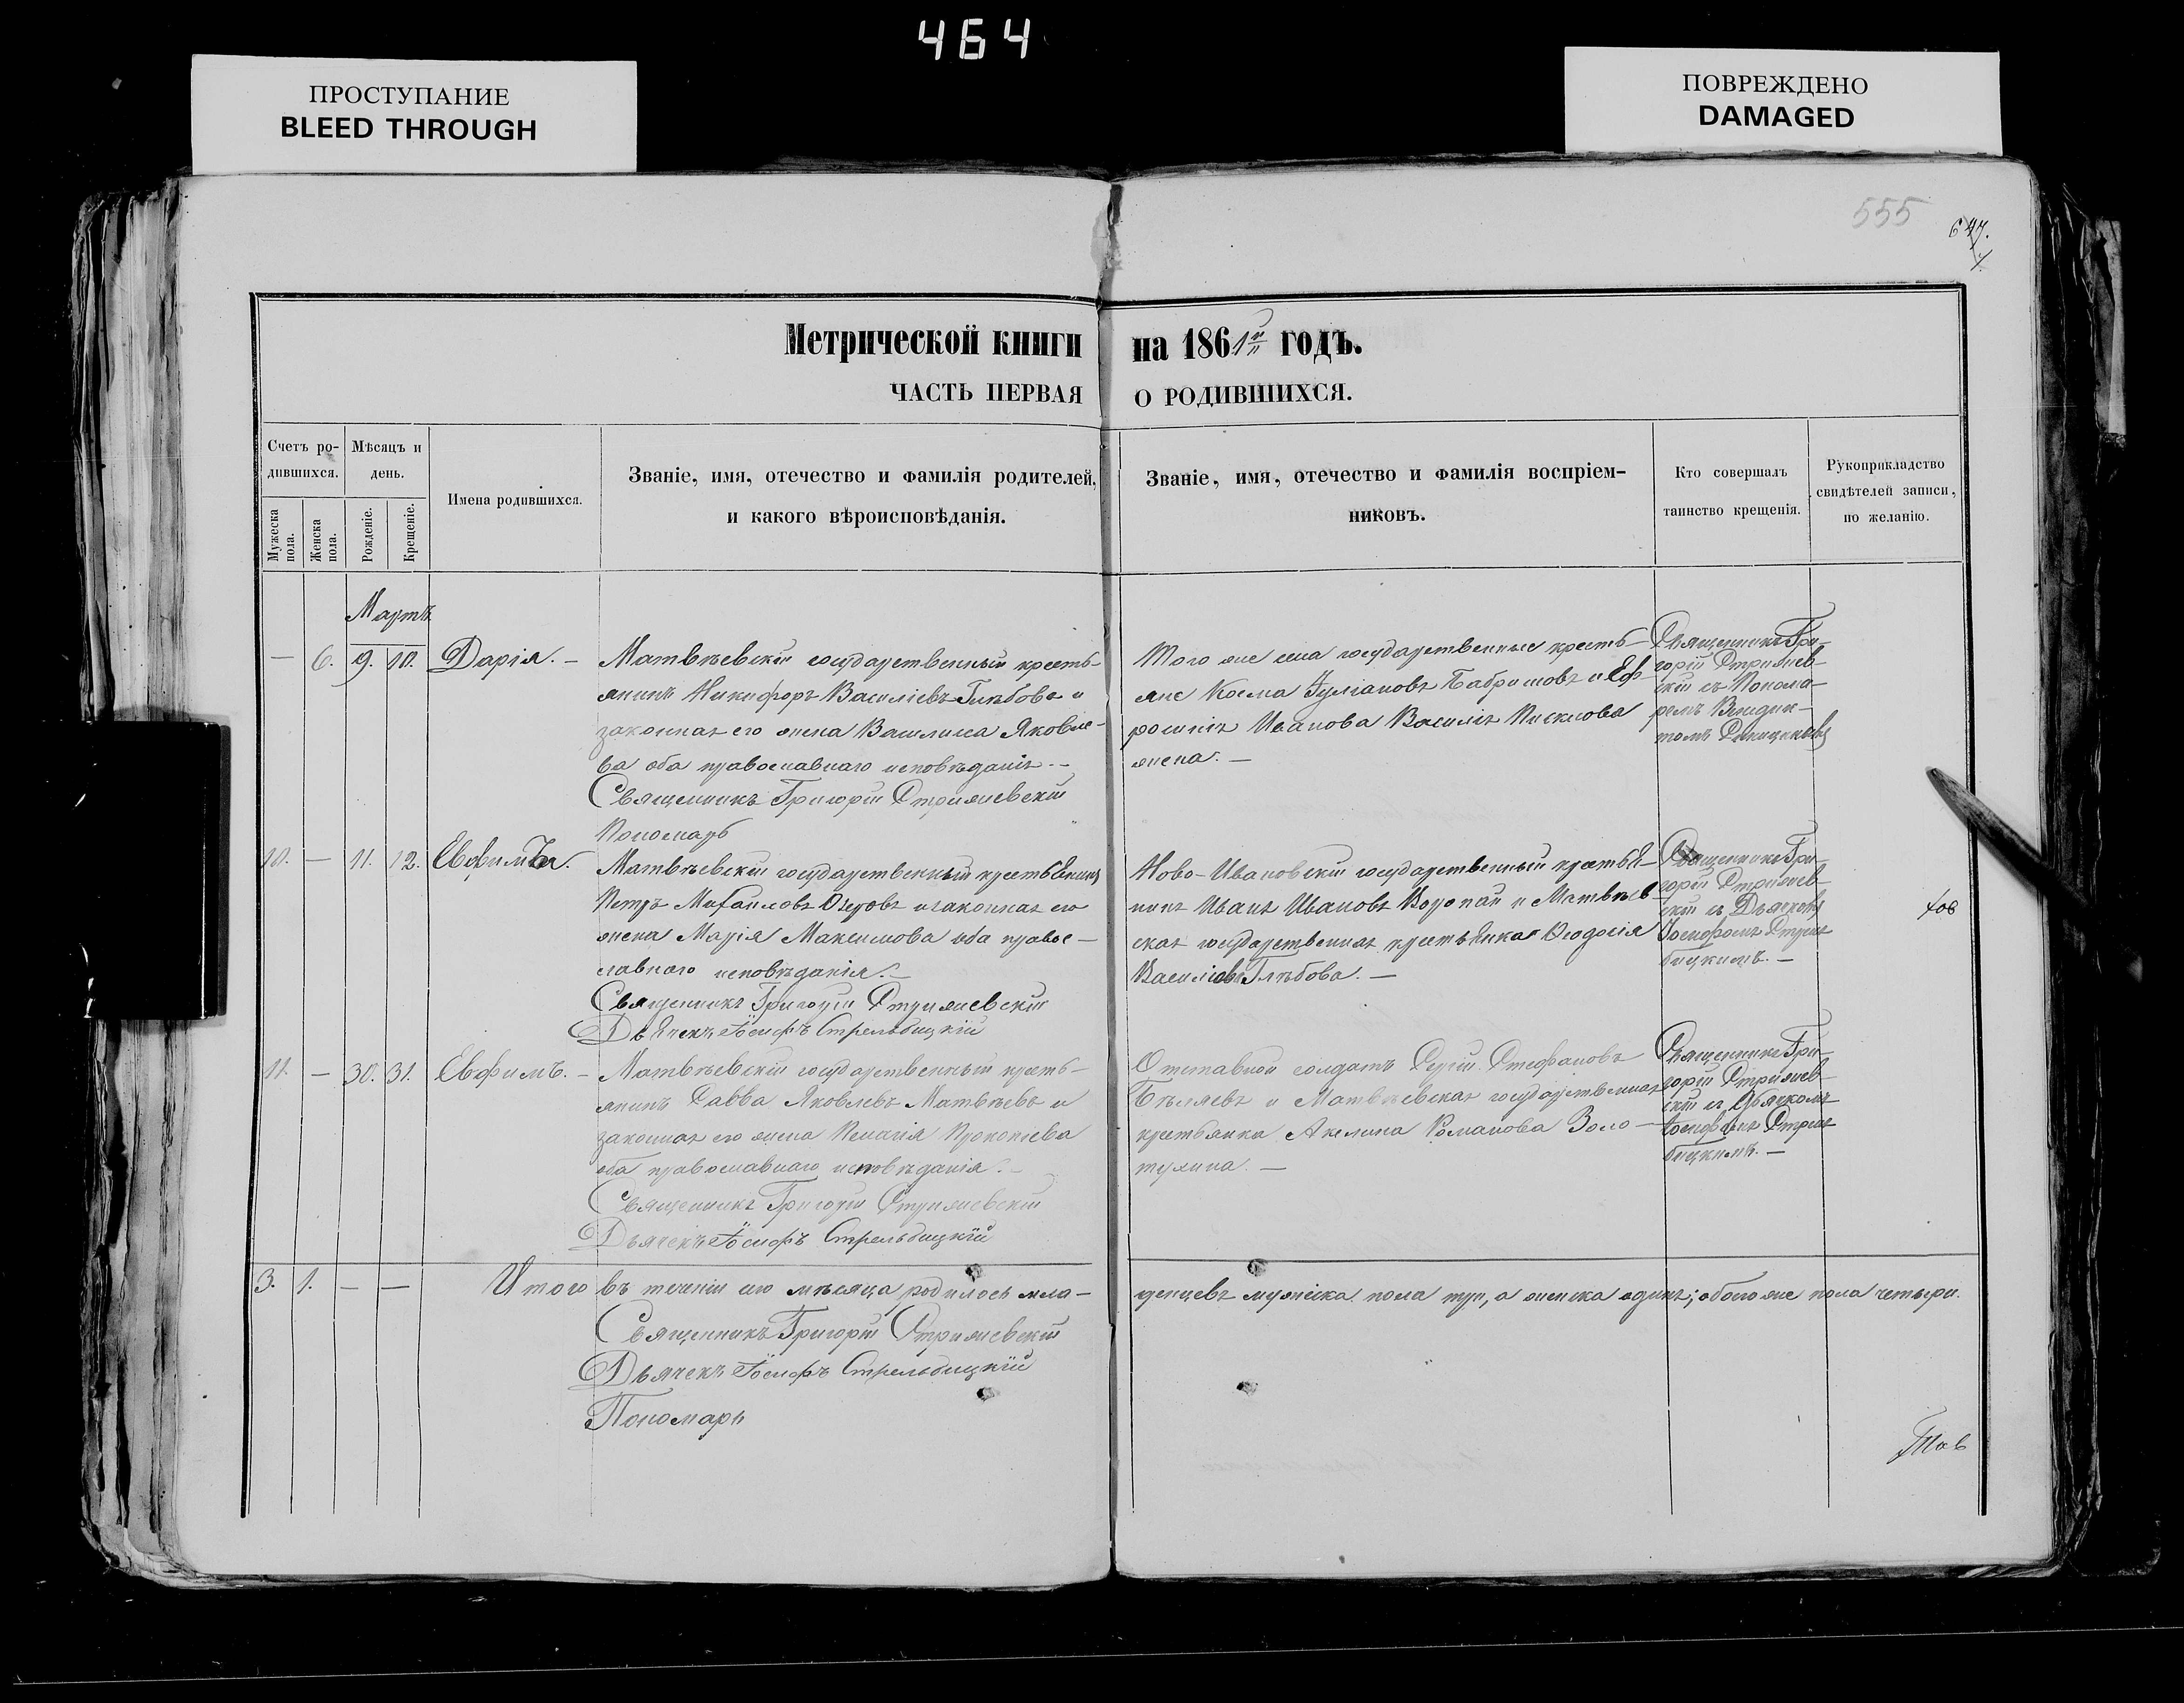 464
ПРОСТУПАНИЕ
BLEED THROUGH
ПОВРЕЖДЕНО
DAMAGED
555
647.
Метрической книги на 1861й годъ.
ЧАСТЬ ПЕРВАЯ О РОДИВШИХСЯ.
Счетъ ро-
дившихся.
Мужеска
пола.
Женска
пола.
Мѣсяцъ и
день.
Рожденіе.
Крещеніе.
Имена родившихся.
Званіе, имя, отечество и фамилія родителей,
и какого вѣроисповѣданія.
Званіе, имя, отечество и фамилія воспріем-
никовъ.
Кто совершалъ
таинство крещенія.
Рукоприкладство
свидѣтелей записи,
по желанію.
Мартъ
— 6. 9. 10. Дарія. —
Матвѣевскій государственный кресть-
янинъ Никифоръ Василіевъ Глѣбовъ и
законная его жена Василиса Яковле-
ва оба православнаго исповѣданія. —
Священникъ Григорій Стрижевскій
Пономарь
Того же села государственные кресть-
яне Косма Іуліановъ и Еф-
росинія Иванова Василія
жена. —
Священникъ Гри-
горій Стрижев-
скій съ Понома-
ремъ Венедик-
томъ
10. — 11. 12. Евфимъ.
Матвѣевскій государственный крестьянинъ
Петръ Михаиловъ Озеровъ и законная его
жена Марія Максимова оба правос-
лавнаго исповѣданія. —
Священникъ Григорій Стрижевскій
Дьячекъ Іосифъ Стрельбицкій
Ново-Ивановскій государственный крестья-
нинъ Иванъ Ивановъ Коропай и Матвѣев-
ская государственная крестьянка Ѳеодосія
Василіева Глѣбова. —
Священникъ Гри-
горій Стрижев-
скій съ Дьячкомъ
Іосифомъ Стрель-
бицкимъ. —
11. — 30. 31. Евфимъ. —
Матвѣевскій государственный кресть-
янинъ Савва Яковлевъ Матвѣевъ и
законная его жена Пелагія Прокопіева
оба православнаго исповѣданія. —
Священникъ Григорій Стрижевскій
Дьячекъ Іосифъ Стрельбицкій
Отставной солдатъ Сергій Стефановъ
Бѣляевъ и Матвѣевская государственная
крестьянка Акелина Романова Золо-
тухина. —
Священникъ Гри-
горій Стрижев-
скій съ Дьячкомъ
Іосифомъ Стрель-
бицкимъ. —
3. 1. — — Итого въ теченіи сего мѣсяца родилось мла-
денцевъ мужеска пола три, а женска одинъ; обоего же пола четыре.
Священникъ Григорій Стрижевскій
Дьячекъ Іосифъ Стрельбицкій
Пономарь